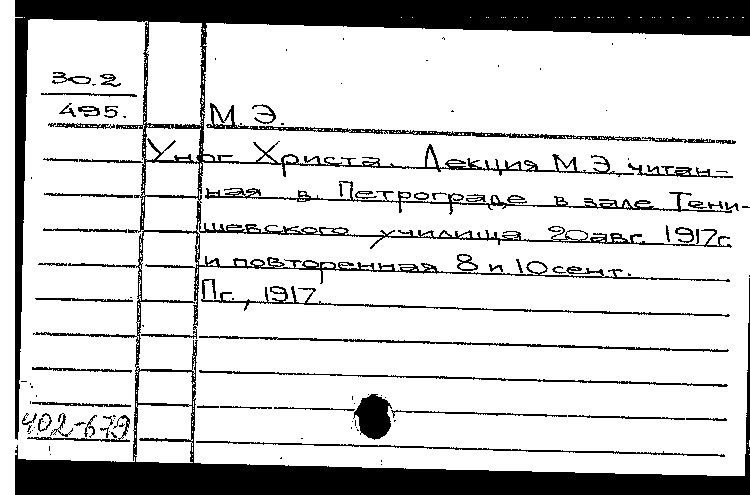 30.2
495.
М. Э.
У ног Христа. Лекция М.Э. читан-
ная в Петрограде в зале Тени-
шевского училища 20 авг. 1917г.
и повторенная 8 и 10 сент.
Пг., 1917
402-679